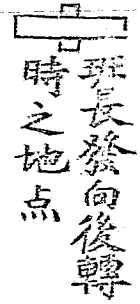 班長發向後轉
時之地点